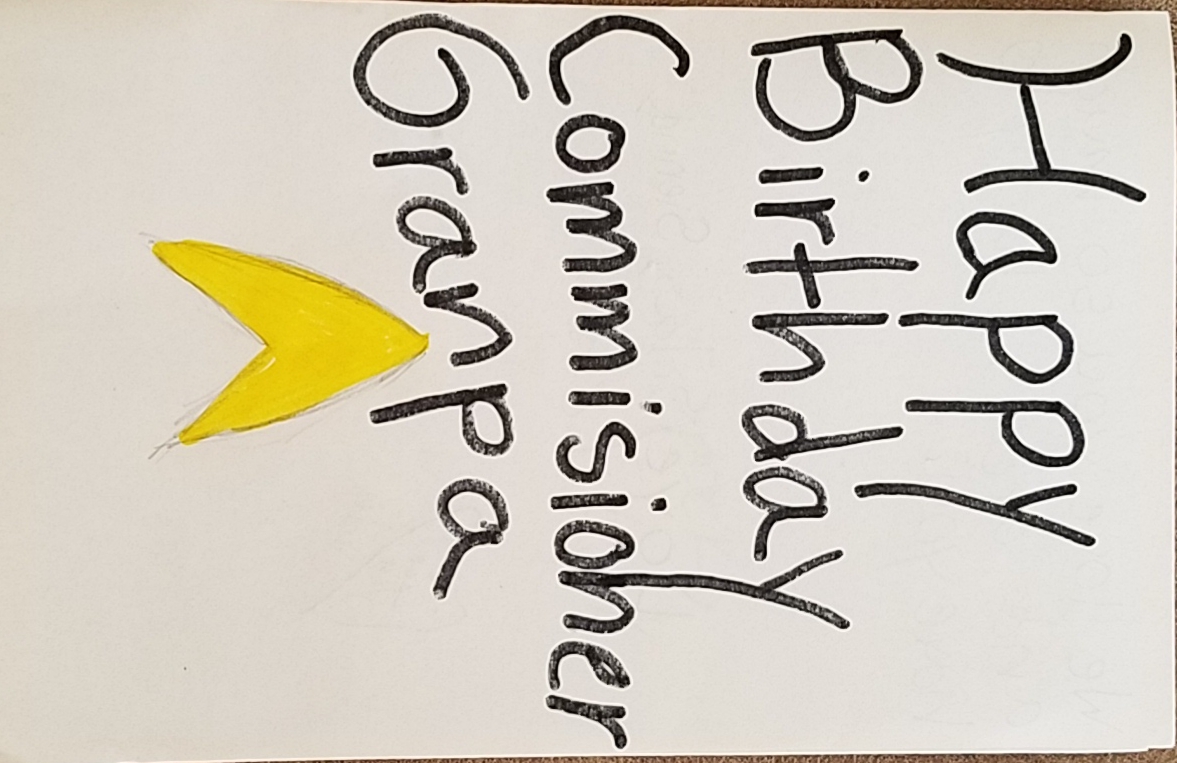 Happy
Birthday
Commisioner
Granpa